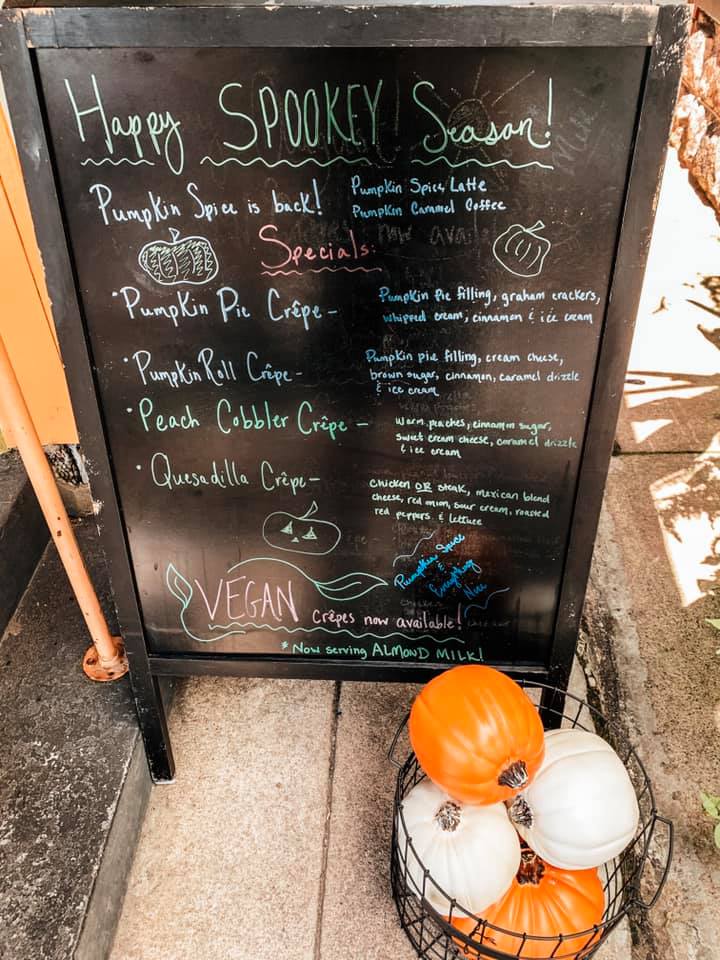 Happy SPOOKEY! Season!
Pumpkin Spice is back!
Pumpkin Spice Latte
Pumpkin Caramel Coffee
Specials:
• Pumpkin Pie Crêpe -
Pumpkin pie filling, graham crackers,
whipped cream, cinnamon & ice cream
• Pumpkin Roll Crêpe -
Pumpkin pie filling, cream cheese,
brown sugar, cinnamon, caramel drizzle
& ice cream
• Peach Cobbler Crêpe -
warm peaches, cinnamon sugar,
sweet cream cheese, caramel drizzle
& ice cream
• Quesadilla Crêpe -
chicken OR steak, mexican blend
cheese, red onion, sour cream, roasted
red peppers & lettuce
Pumpkin Spice
&
Everything
Nice
VEGAN crêpes now available!
* Now serving ALMOND MILK!